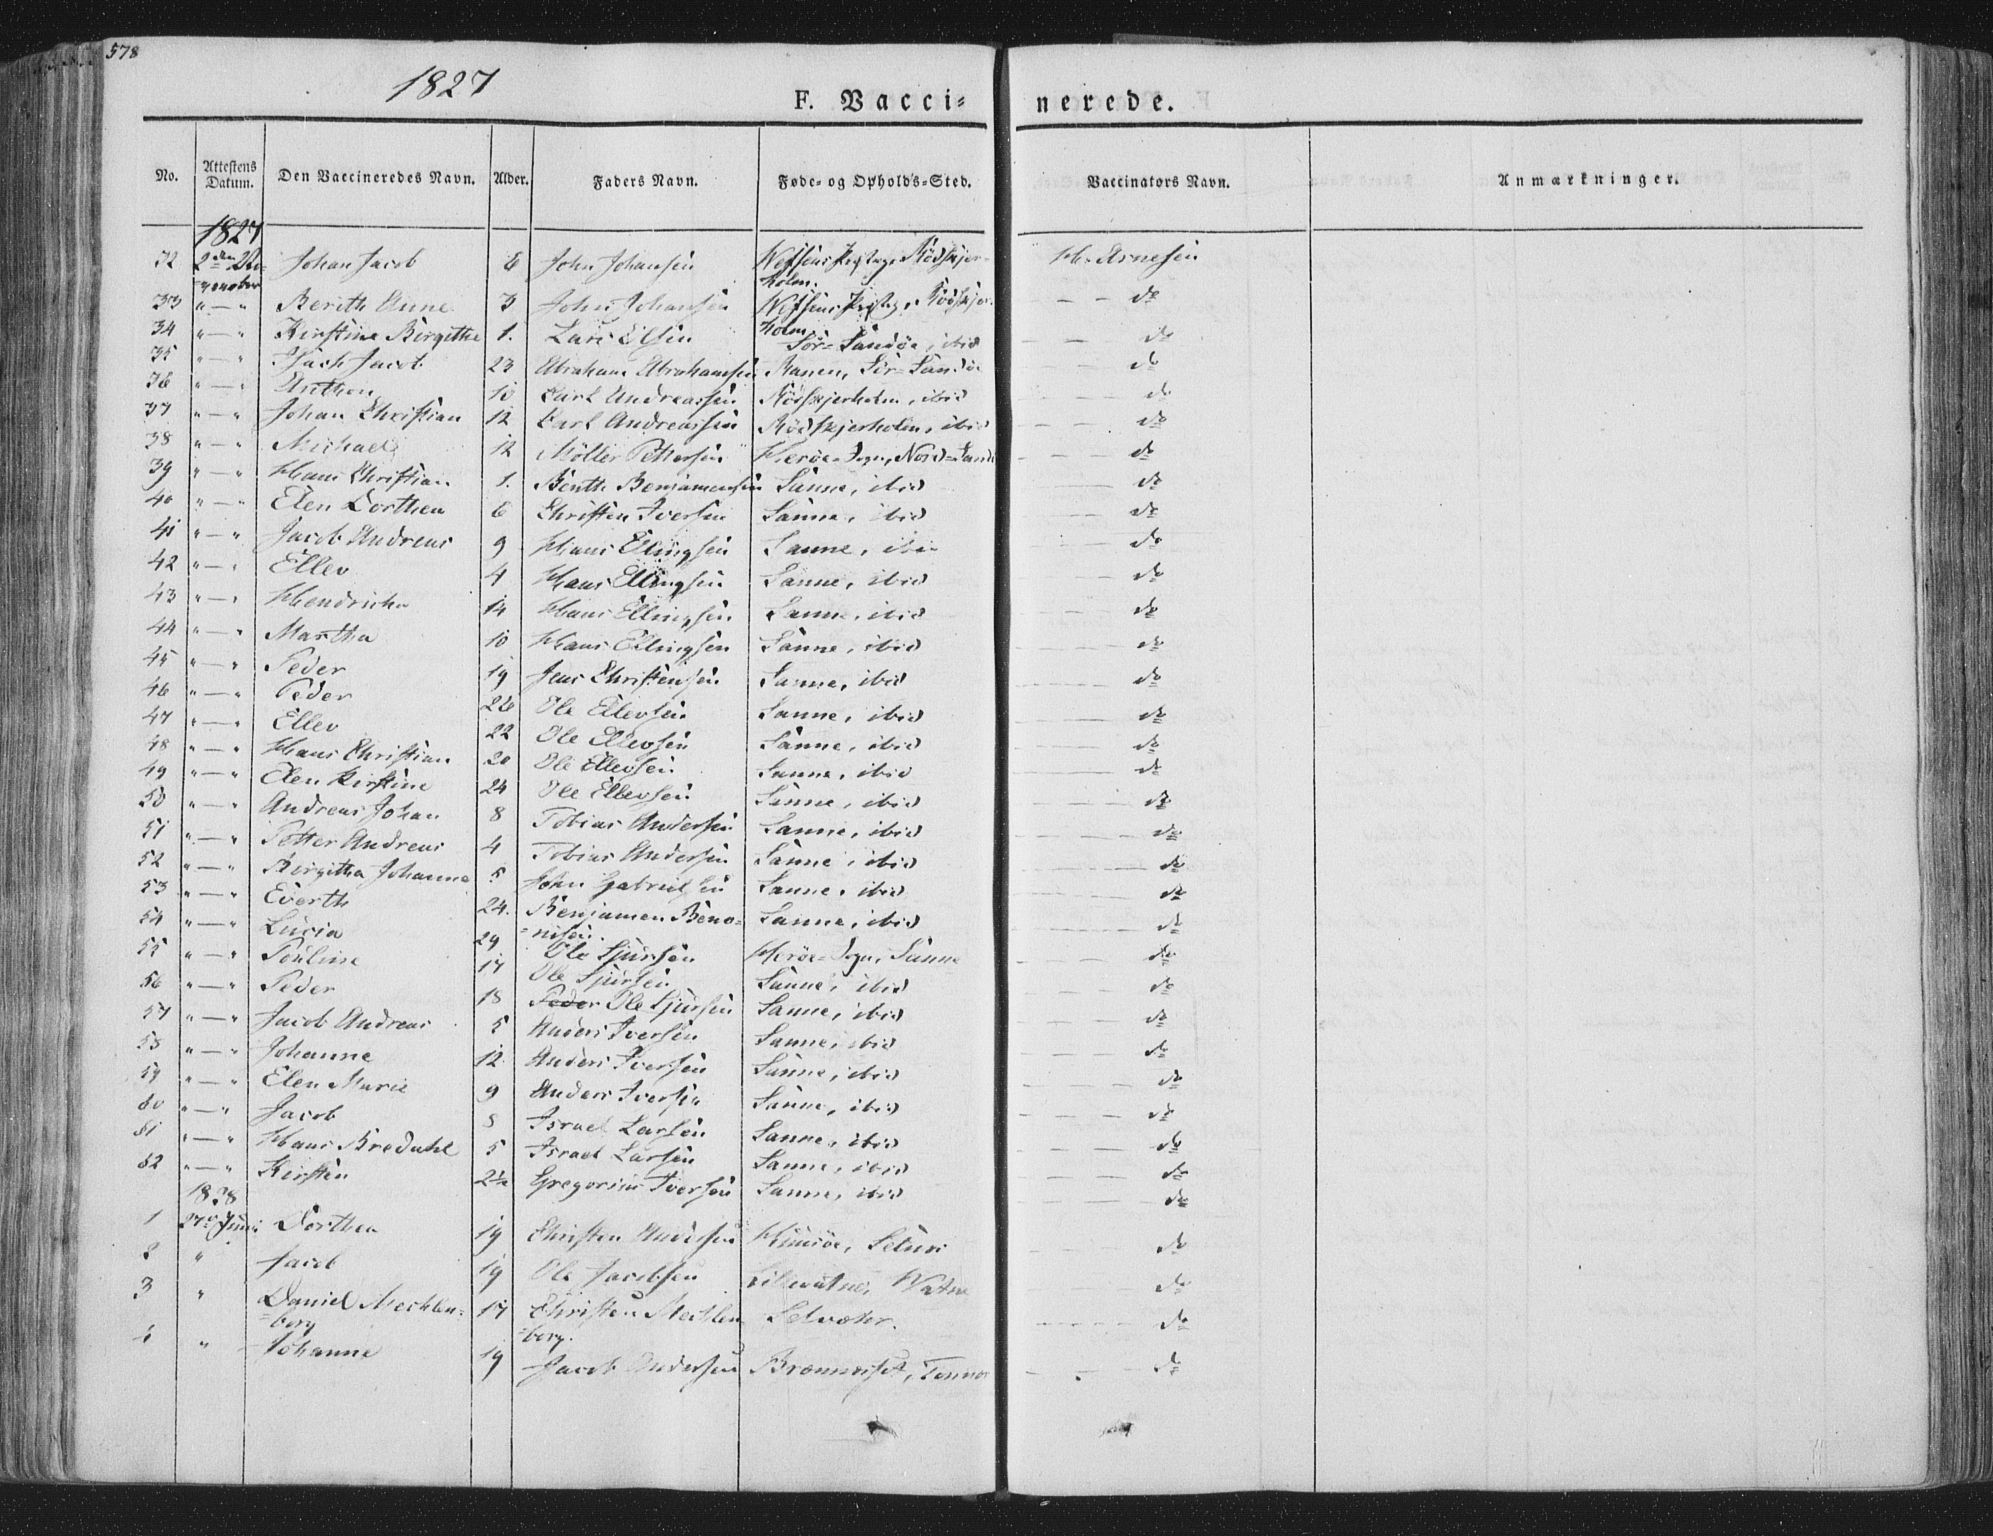 578
1827
F. Vacci= nerede.
No. Attestens Datum. Den Vaccineredes Navn. Alder. Faders Navn. Føde- og Opholds-Sted. Vaccinators Navn. Anmærkninger.
1827
32 2den Johan Jacob 6 John Johansen Rödskjer= H. Arnesen
holm.
33 " — " Berith Anne 3 John Johansen Rödskjer= — — do
holm
34 " — " Kirstine Birgithe 1. Lars Olsen Sör=Sandöe, ibid — — do
35 " — " Isach Jacob 23 Abraham Abrahamsen Ranen, Sör=Sandöe — — do
36 " — " Anthon 10 Carl Andreassen Rödskjerholm, ibid — — do
37 " — " Johan Christian 12 Carl Andreassen Rödskjerholm, ibid — — do
38 " — " Michael 12 Möller Pettersen Heröe=Sogn, Nord=Sand — — do
39 " — " Hans Christian 1. Benth Benjamensen Sanne, ibid — — do
40 " — " Elen Dorthea 6 Christen Iversen Sanne, ibid — — do
41 " — " Jacob Andreas 9 Hans Ellingsen Sanne, ibid — — do
42 " — " Ellev 4 Hans Ellingsen Sanne, ibid — — do
43 " — " Hendricha 14 Hans Ellingsen Sanne, ibid — — do
44 " — " Martha 10 Hans Ellingsen Sanne, ibid — — do
45 " — " Peder 19 Jens Christensen Sanne, ibid — — do
46 " — " Peder 26 Ole Ellevsen Sanne, ibid — — do
47 " — " Ellev 22 Ole Ellevsen Sanne, ibid — — do
48 " — " Hans Christian 20 Ole Ellevsen Sanne, ibid — — do
49 " — " Elen Kirstine 24 Ole Ellevsen Sanne, ibid — — do
50 " — " Andreas Johan 8 Tobias Andersen Sanne, ibid — — do
51 " — " Petter Andreas 4 Tobias Andersen Sanne, ibid — — do
52 " — " Birgitha Johanna 5 John Gabrielsen Sanne, ibid — — do
53 " — " Everth 24. Benjamen Beno= Sanne, ibid — — do
=nisen.
54 " — " Lucia 29 Ole Sjursen Heröe=Sogn, Sanne — — do
55 " — " Pouline 17 Ole Sjursen Sanne, ibid — — do
56 " — " Peder 18 Peder Ole Sjursen Sanne, ibid — — do
57 " — " Jacob Andreas 5 Anders Iversen Sanne, ibid — — do
58 " — " Johanne 12 Anders Iversen Sanne, ibid — — do
59 " — " Elen Marie 9 Anders Iversen Sanne, ibid — — do
60 " — " Jacob 8 Israel Larsen Sanne, ibid — — do
61 " — " Hans Bredahl 5 Israel Larsen Sanne, ibid — — do
62 " — " Kirsten 2½ Gregorius Iversen Sanne, ibid — — do
1828
1 27de Juni Dorthea 19 Christen Andersen — — do
2 " Jacob 19 Ole Jacobsen — — do
3 " Daniel Mechlen= 17 Christen Mechlen Selvær. — — do
=borg =borg.
4 " Johanne 19 Jacob Andersen — — do